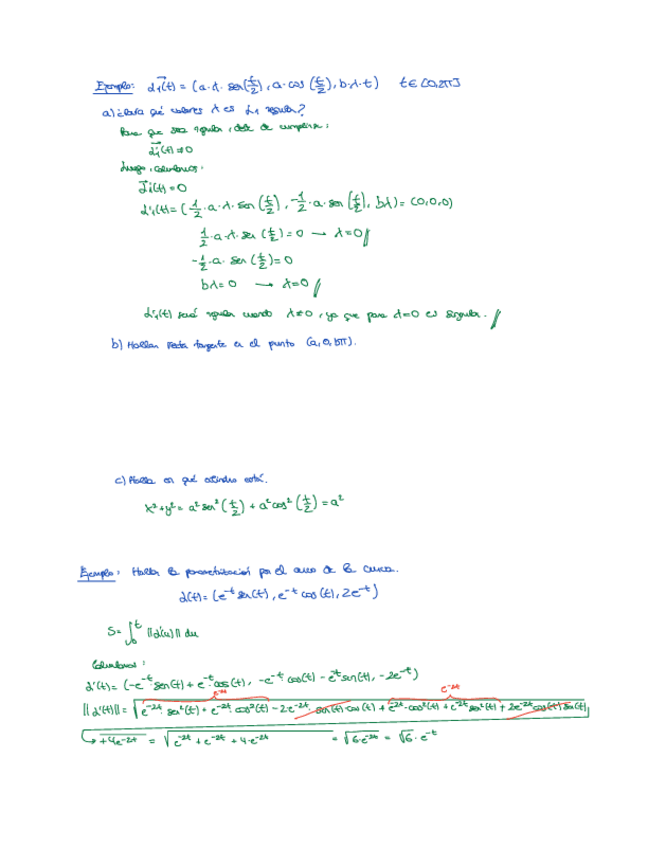 Ejemplo: α₁(t) = (a·λ·sen(t/2), a·cos(t/2), b·λ·t) t∈[0,2π]
a) ¿Para qué valores λ es α₁ regular?
Para que sea regular, debe de cumplirse:
α₁'(t) ≠ 0
Luego, calculamos:
α₁'(t) = 0
α'₁(t) = (1/2·a·λ·sen(t/2), -1/2·a·sen(t/2), bλ) = (0,0,0)
1/2·a·λ·sen(t/2) = 0 → λ=0//
-1/2·a·sen(t/2) = 0
bλ = 0 → λ=0//
α'₁(t) será regular cuando λ≠0, ya que para λ=0 es singular.//
b) Hallar recta tangente en el punto (a, 0, bπ).
c) Halla en qué cilindro está.
x²+y² = a² sen²(t/2) + a² cos²(t/2) = a²
Ejemplo: Hallar la parametrización por el arco de la curva.
α(t) = (e^-t sen(t), e^-t cos(t), 2e^-t)
S = ∫₀^t ||α'(u)|| du
Calculamos:
α'(t) = (-e^-t·sen(t) + e^-t·cos(t), -e^-t·cos(t) - e^-t sen(t), -2e^-t)
e^-2t e^-2t
||α'(t)|| = √(e^-2t·sen²(t) + e^-2t·cos²(t) - 2e^-2t·sen(t)cos(t) + e^-2t·cos²(t) + e^-2t sen²(t) + 2e^-2t cos(t)sen(t)
↳ +4e^-2t) = √(e^-2t + e^-2t + 4·e^-2t) = √(6·e^-2t) = √6·e^-t